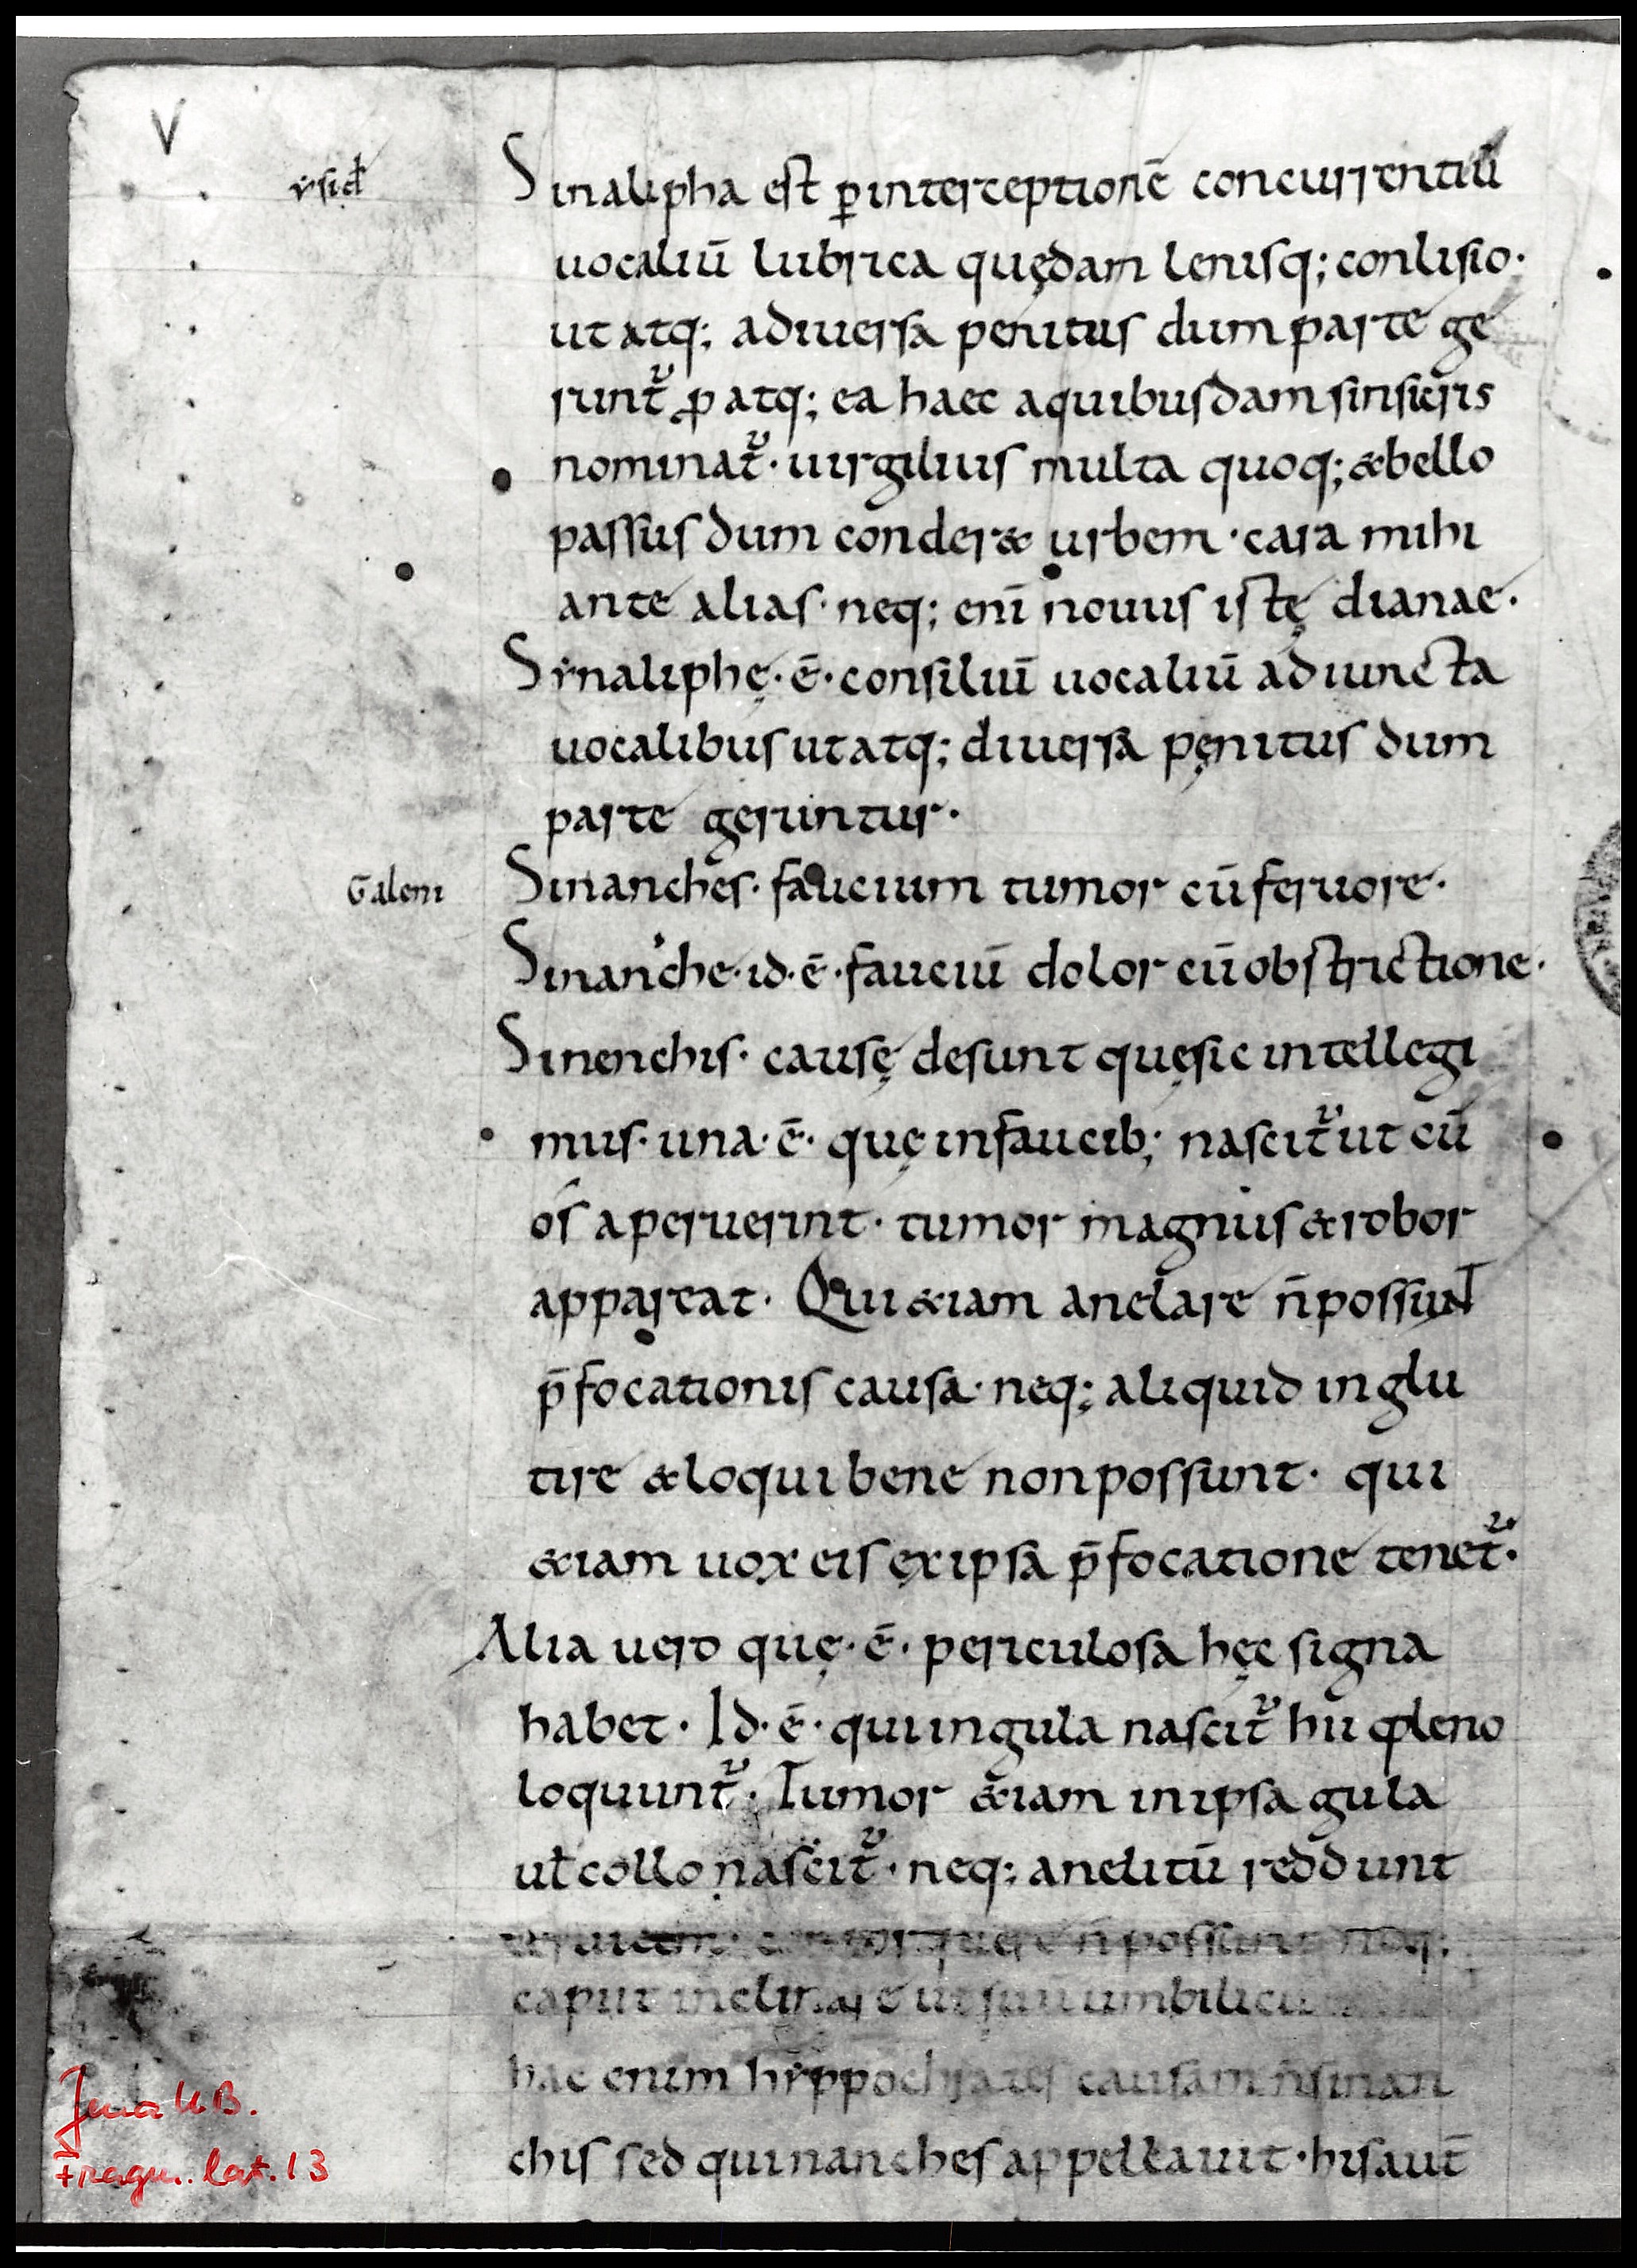 V
ẏsid̄
Sinalipha est ꝑinterceptionē concurrentiū
uocaliū lubrica quędam lenisq; conlisio·
ut atq; adiuersa penitus dum parte ge
runt᷑ ꝓ atq; ea haec aquibusdam sinsicris
nominat᷑· uirgilius multa quoq; &bello
passus dum conder& urbem · cara mihi
ante alias· neq; enī nouus istę dianae·
Sẏnaliphę·ē·consiliuī uocaliū adiuncta
uocalibus ut atq; diuersa pęnitus dum
parte geruntur·
Galeni
Sinanches· faucium tumor cū feruore·
Sinanche·id·ē·fauciū dolor cū obstrictione·
Sinenchis· causę desunt quęsic intellegi
mus· una·ē· quę infaucib; nascit᷑ ut cū
os aperuerint· tumor magnus & robor
appareat· Qui &iam anelare n̄ possunt
p̄focationis causa· neq; aliquid inglu
tire &loqui bene non possunt· qui
&iam uox eis ęx ipsa p̄focatione tenet᷑·
Alia uero quę·ē· periculosa hęc signa
habet· Id·ē· qui in gula nascit᷑ hii pleno
loquunt᷑· Tumor &iam in ipsa gula
ut̄ collo nascit᷑· neq; anelitū reddunt
n̄ possunt neq;
caput inclinare ut suū umbilicū
hac enim hẏppochrates causam n̄ sinan
chis sed quinanches appellauit· his aut̄
Jena UB.
Fragm. lat. 13